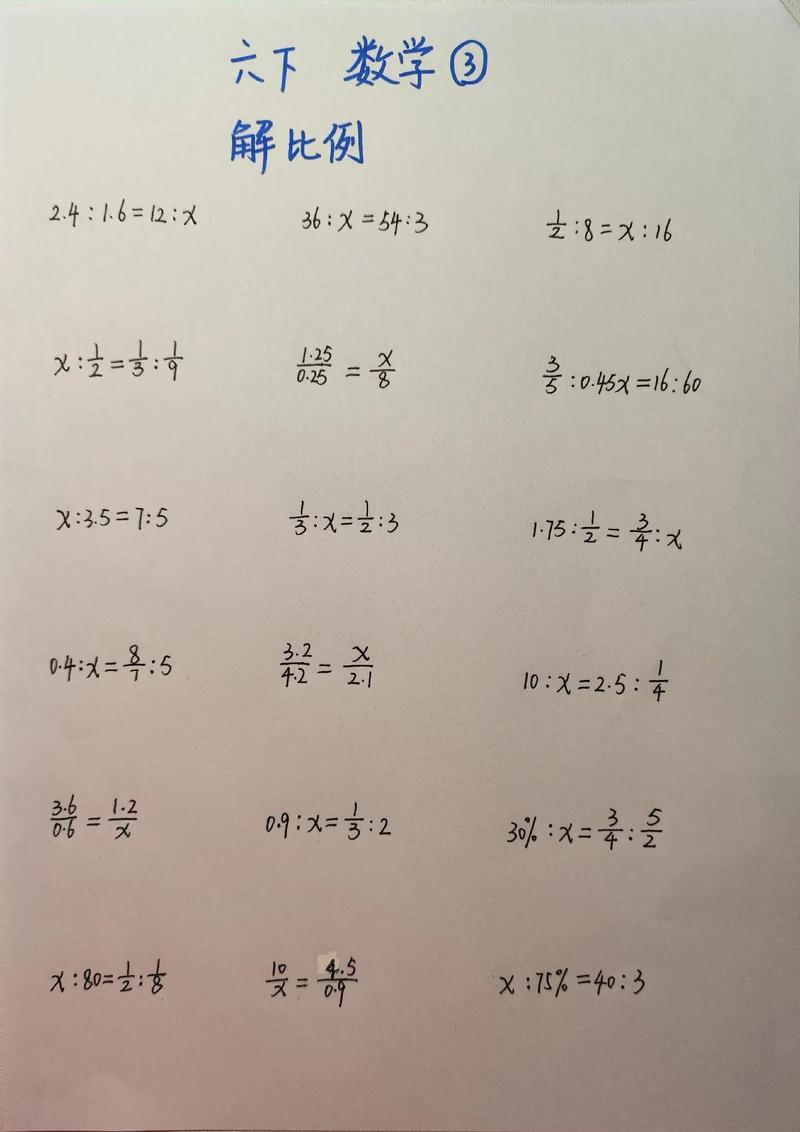 六下 数学③
解比例
2.4:1.6=12:x 36:x=54:3 1/2:8=x:16
x:1/2=1/3:1/9 1.25/0.25=x/8 3/5:0.45x=16:60
x:3.5=7:5 1/3:x=1/2:3 1.75:1/2=3/4:x
0.4:x=8/7:5 3.2/4.2=x/2.1 10:x=2.5:1/4
3.6/0.6=1.2/x 0.9:x=1/3:2 30%:x=3/4:5/2
x:80=1/2:1/8 10/x=4.5/0.9 x:75%=40:3